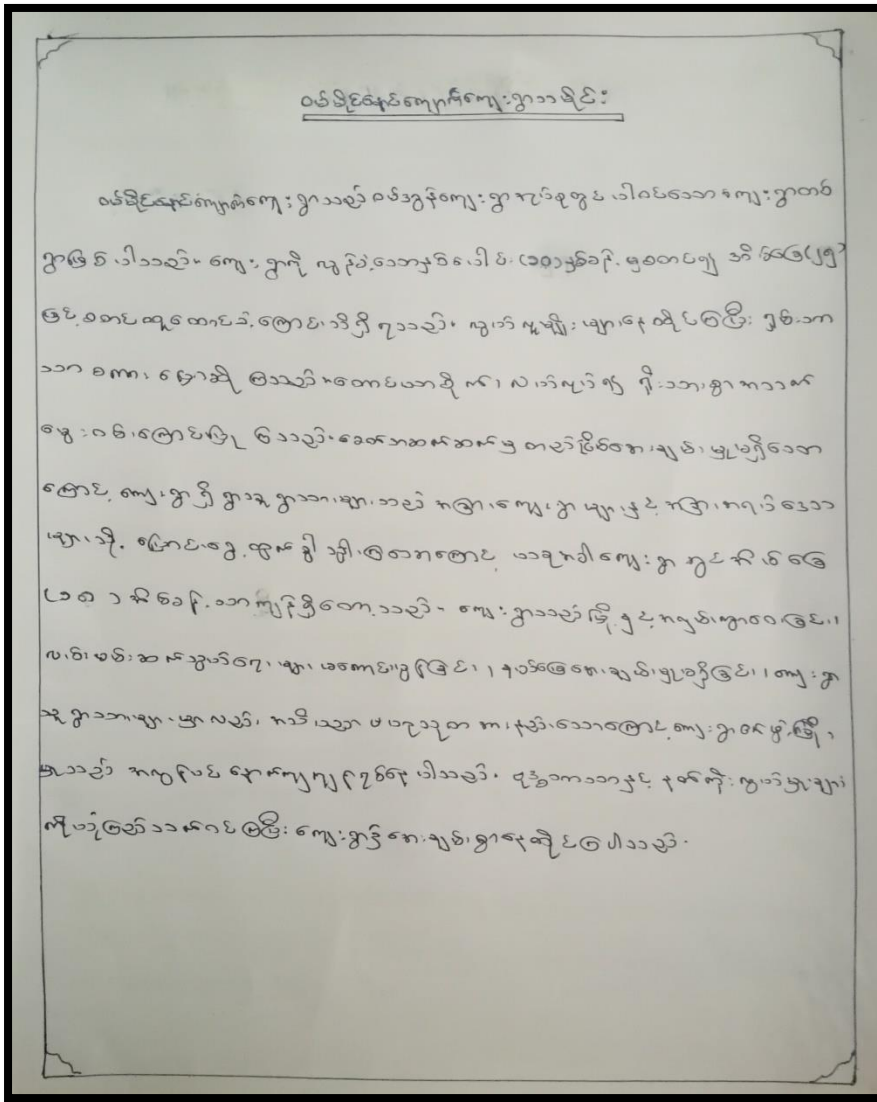 ဝမ်ခိုင်နောင်ကျောက်ကျေးရွာသမိုင်း
ဝမ်ခိုင်နောင်ကျောက်ကျေးရွာသည် ဝမ်အွန်ကျေးရွာအုပ်စုတွင် ပါဝင်သော ကျေးရွာတစ်
ရွာဖြစ်ပါသည်။ ကျေးရွာကို လွန်ခဲ့သောနှစ်ပေါင်း (၁၀၀)နှစ်ခန့် မှစတင်၍ အိမ်ခြေ(၂၅)
ဖြင့် စတင်ထူထောင်ခဲ့ကြောင်း သိရှိရသည်။ လွယ်လူမျိုးများနေထိုင်ကြပြီး ရှမ်းဘာ
သာ စကားပြောဆိုကြသည်။ တောင်ယာစိုက်၊ လယ်လုပ်၍ ရိုးသားစွာအသက်
မွေးဝမ်းကြောင်းပြု ကြသည်။ ခေတ်အဆက်ဆက်မှ တည်ငြိမ်အေးချမ်းမှုမရှိသော
ကြောင့် ကျေးရွာရှိ ရွာသူရွာသားများသည် အခြားကျေးရွာများနှင့် အခြားအရပ်ဒေသ
များသို့ ပြောင်းရွှေ့ထွက်ခွါသွါးကြသောကြောင့် ယခုအခါကျေးရွာတွင် အိမ်ခြေ
(၁၈) အိမ်ခန့်သာကျန်ရှိတော့သည်။ ကျေးရွာသည်မြို့နှင့်အလှမ်းကွာဝေးခြင်း၊
လမ်းပမ်းဆက်သွယ်ရေးများမကောင်းမွန်ခြင်း၊ နယ်မြေအေးချမ်းမှုမရှိခြင်း၊ ကျေးရွာ
သူရွာသားများမှာလည်း အသိပညာဗဟုသုတ အားနည်းသောကြောင့် ကျေးရွာဖွံ့ဖြိုး
မှုသည် အလွန်ပင် နောက်ကျကျန်ရစ်နေပါသည်။ ဗုဒ္ဓဘာသာနှင့် နတ်ကိုးကွယ်မှုများ
ကိုယုံကြည်သက်ဝင်ကြပြီး ကျေးရွာ၌အေးချမ်းစွာနေထိုင်ကြပါသည်။